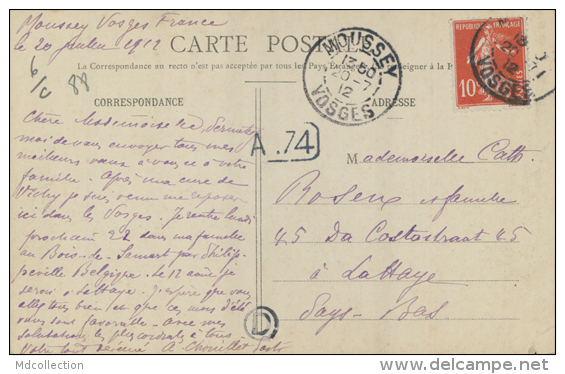 Moussey Vosges France
le 20 juillet 1912
CARTE POSTALE
La Correspondance au recto n'est pas acceptée par tous les Pays Etrangers
6/c
88
CORRESPONDANCE
ADRESSE
MOUSSEY
13 50
20 - 7
12
VOSGES
REPUBLIQUE FRANÇAISE
10
VOSGES
A.74
D.
Chère Mademoiselle
moi de vous envoyer tous mes
meilleurs vœux à vous et à votre
famille. Après une cure de
Vichy je suis venu me reposer
ici dans les Vosges. Je rentre lundi
prochain 22 dans ma famille
au Bois-de-Samart par Philip-
peville Belgique. Le 12 août je
serai à la Haye. J'espère que vous
allez tous bien et que ces mois d'été
vous sont favorables. Avec mes
salutations les plus cordiales à tous
Votre tout dévoué A. Chouillet
Mademoiselle Cath.
Rosenx et famille
45 Da Costastraat 45
à La Haye
Pays-Bas
Mdcollection
http://www.delcampe.net